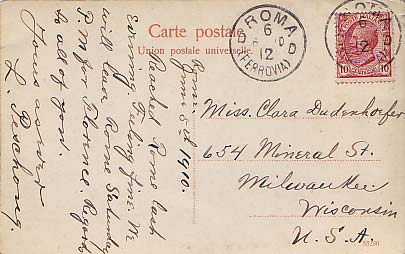 Carte postale
Union postale universelle.
ROMA
6
12
(FERROVIA)
ROMA
12
10
Rome
8th 1910.
Reached Rome last
Evening Feeling fine. We
will leave Rome Saturday
P.M. for Florence. Regards
to all of you.
Yours as ever
L.
Miss. Clara Dudenhoefer
654 Mineral St.
Milwaukee.
Wisconsin
U.S.A.